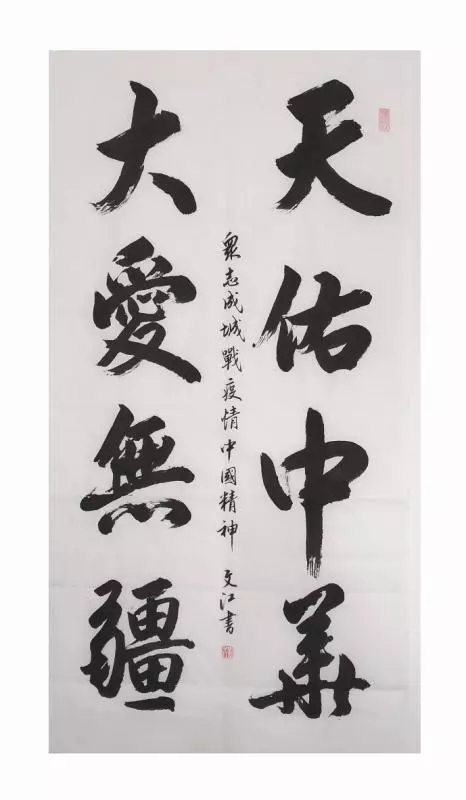 天佑中華
大愛無疆
眾志成城戰疫情中國精神 文江書